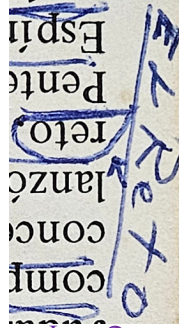 comp
conce
lanzó
reto.
Pente
Espír
EL ReTO